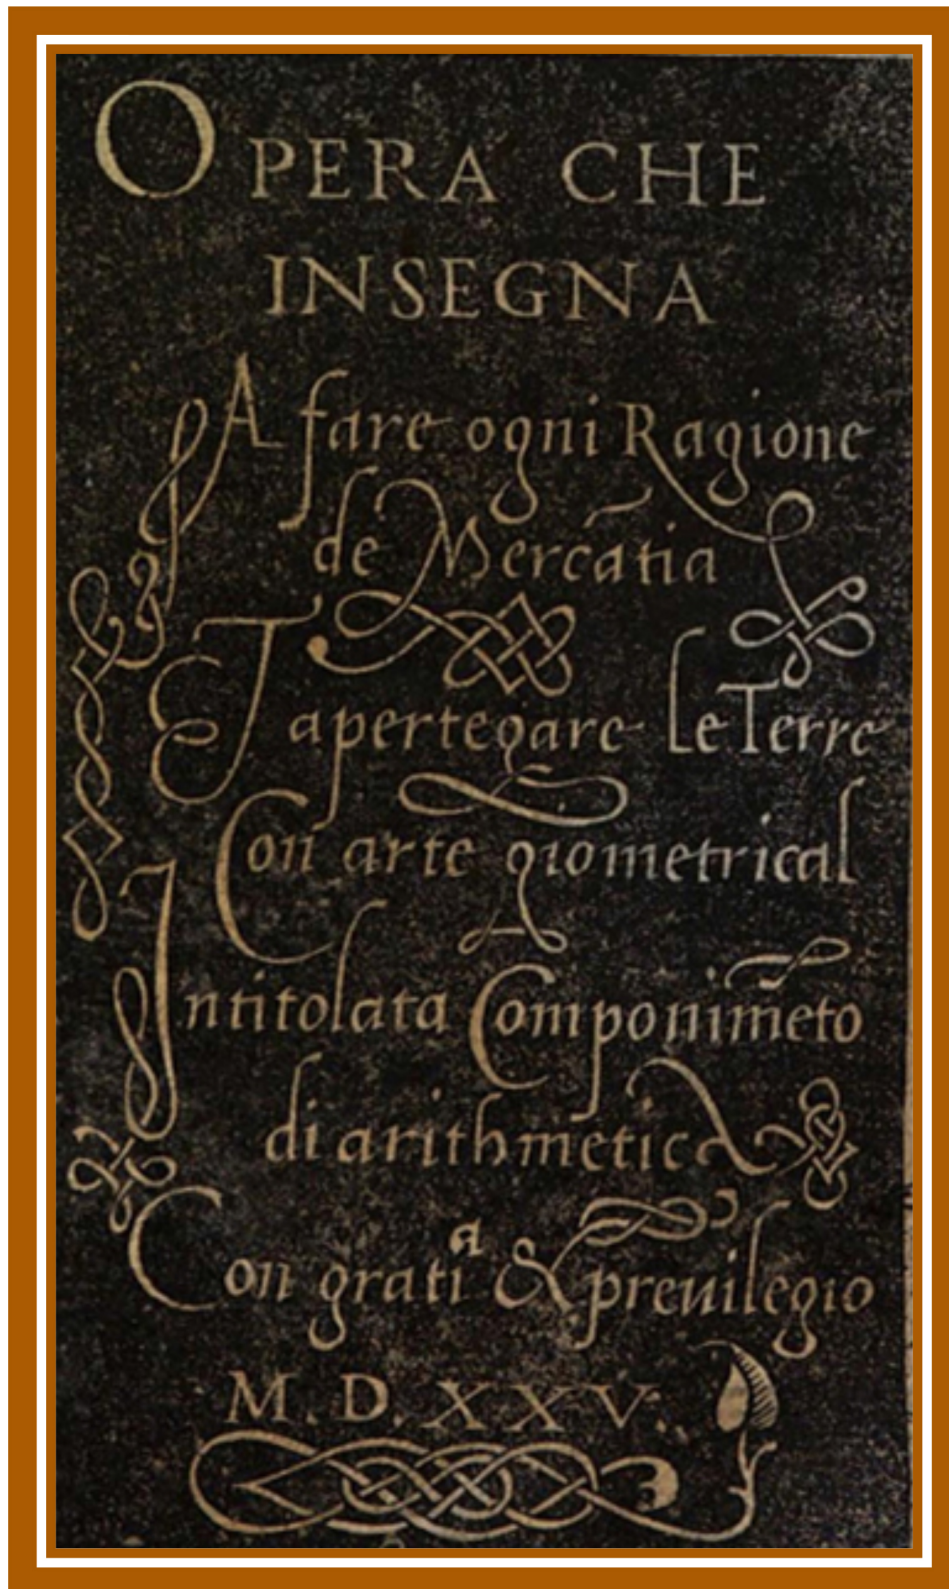 OPERA CHE
INSEGNA
A fare ogni Ragione
de Mercātia
Et apertegare le Terre
Con arte giometrical
Intitolata Componim̄eto
di arithmetica
Con gratia & preuilegio
M. D. XXV.